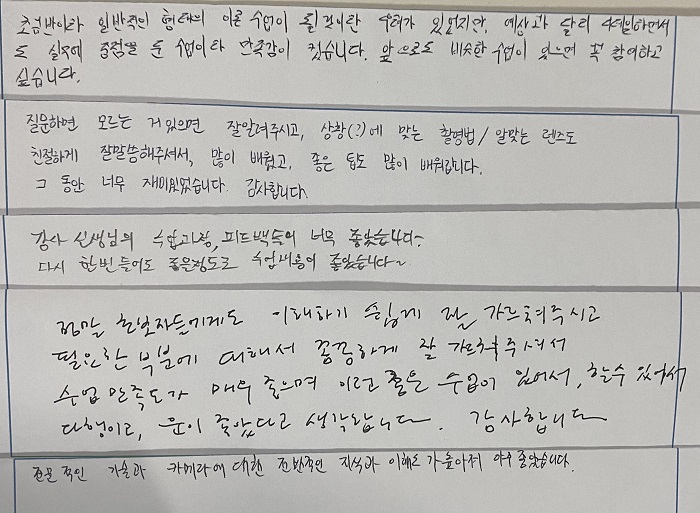 초급반이라 일반적인 형태의 이론 수업이 될 것이란 우려가 있었지만, 예상과 달리 디테일하면서
도 실무에 중점을 둔 수업이라 만족감이 컸습니다. 앞으로도 비슷한 수업이 있으면 꼭 참여하고
싶습니다.
질문하면 모르는 거 있으면 잘알려주시고, 상황(?)에 맞는 촬영법/알맞는 렌즈도
친절하게 잘말씀해주셔서, 많이 배웠고, 좋은 팁도 많이 배워갑니다.
그 동안 너무 재미있었습니다. 감사합니다.
강사 선생님의 수업과정, 피드백속의 너무 좋았습니다~
다시 한번 들어도 좋은정도로 수업내용이 좋았습니다~
정말 초보자들에게도 이해하기 쉽게 잘 가르쳐주시고
필요한 부분에 대해서 꼼꼼하게 잘 가르쳐주셔서
수업 만족도가 매우 좋으며 이런 좋은 수업이 있어서, 할수 있어서
다행이고, 운이 좋았다고 생각합니다. 감사합니다
전문적인 기술과 카메라에 대한 전반적인 지식과 이해도가 높아져 아주 좋았습니다.